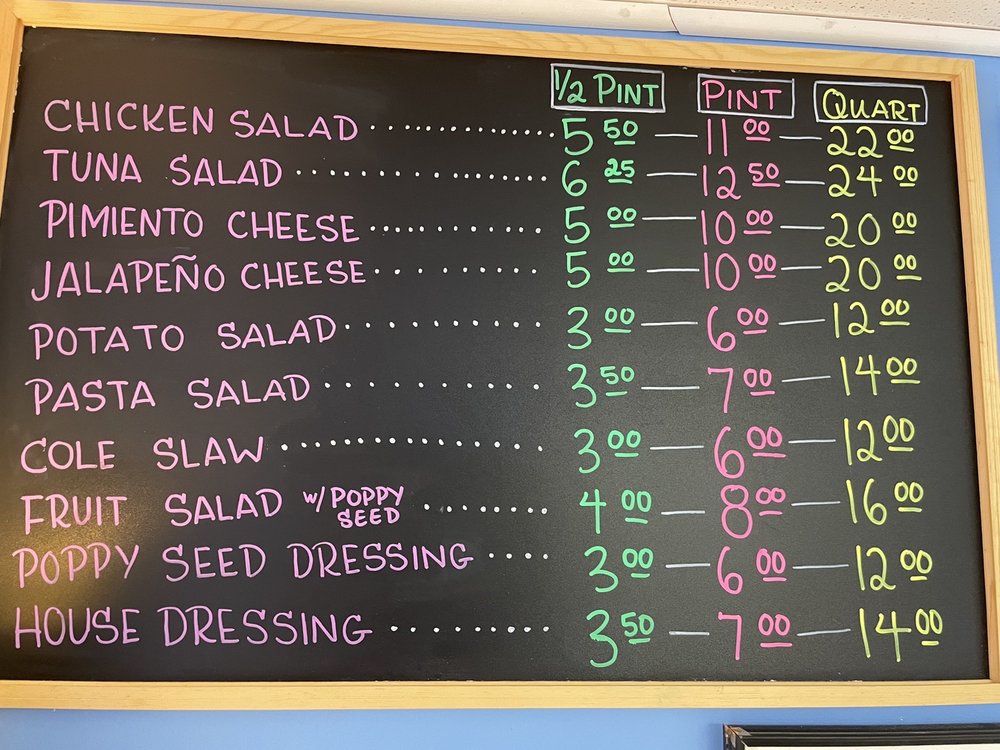 1/2 PINT PINT QUART
CHICKEN SALAD .................... 5 50 — 11 00 — 22 00
TUNA SALAD .................... 6 25 — 12 50 — 24 00
PIMIENTO CHEESE ............ 5 00 — 10 00 — 20 00
JALAPEÑO CHEESE ......... 5 00 — 10 00 — 20 00
POTATO SALAD ........... 3 00 — 6 00 — 12 00
PASTA SALAD ............ 3 50 — 7 00 — 14 00
COLE SLAW ................ 3 00 — 6 00 — 12 00
FRUIT SALAD w/ POPPY SEED ......... 4 00 — 8 00 — 16 00
POPPY SEED DRESSING .... 3 00 — 6 00 — 12 00
HOUSE DRESSING ......... 3 50 — 7 00 — 14 00